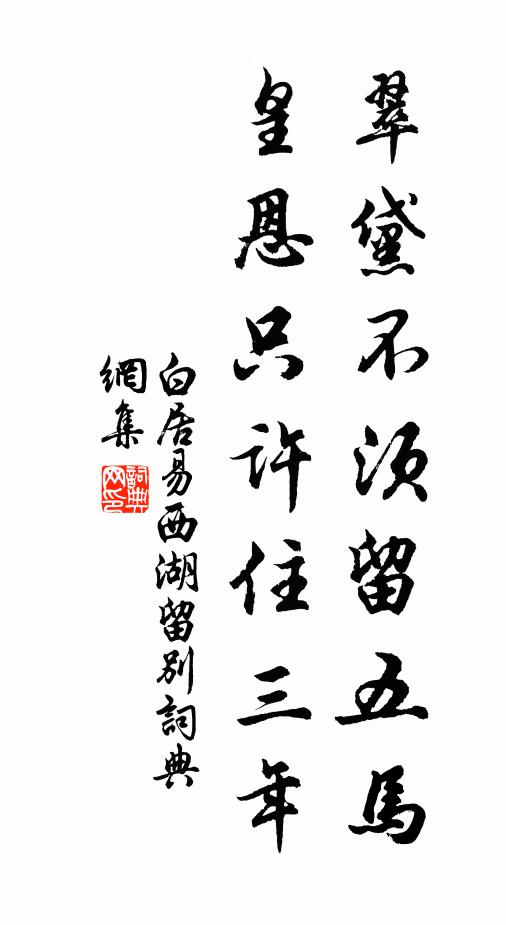 翠黛不須留五馬
皇恩只許住三年
白居易西湖留別詞典
網集
詞典網印